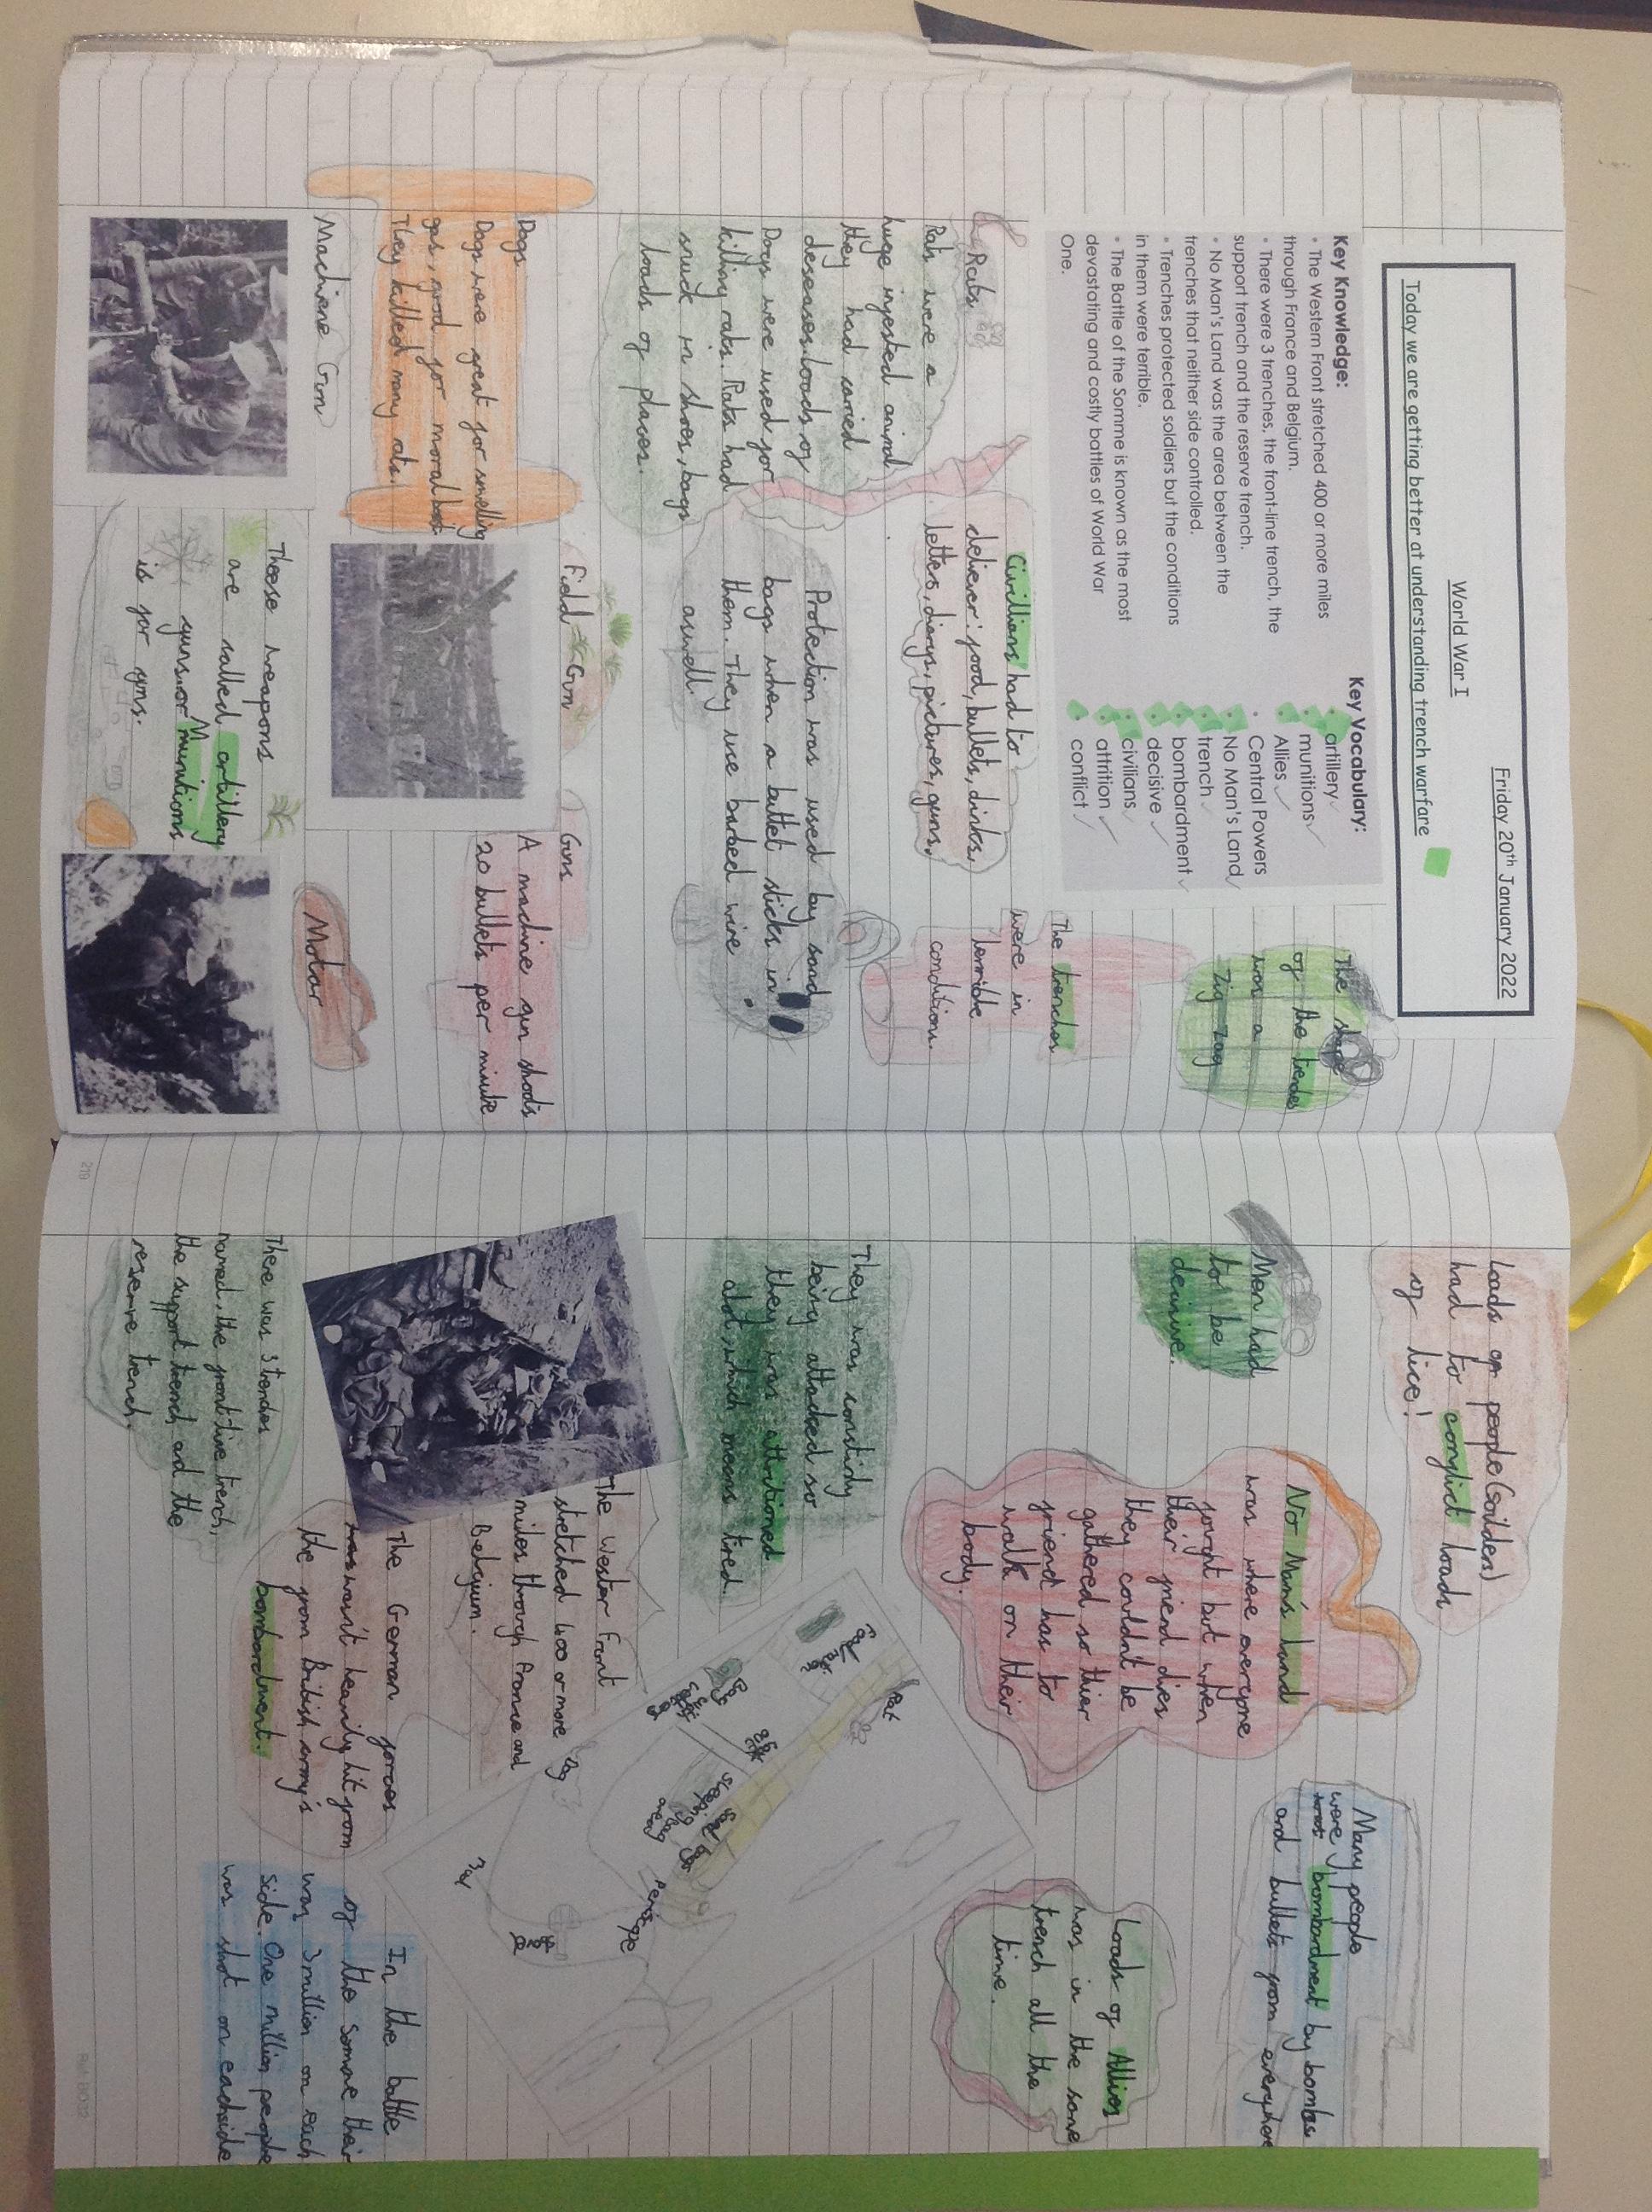 Friday 20th January 2022
World War I
Today we are getting better at understanding trench warfare
Key Knowledge:
• The Western Front stretched 400 or more miles
through France and Belgium.
• There were 3 trenches, the front-line trench, the
support trench and the reserve trench.
• No Man's Land was the area between the
trenches that neither side controlled.
• Trenches protected soldiers but the conditions
in them were terrible.
• The Battle of the Somme is known as the most
devastating and costly battles of World War
One.
Key Vocabulary:
• artillery
• munitions
• Allies
• Central Powers
• No Man's Land
• trench
• bombardment
• decisive
• civilians
• attrition
• conflict
The shape
of the trenches
was a
Zig Zag
The trenches
were in
terrible
conditions.
Rats
Rats were a
huge ingested animal
they had carried
deseases. Loads of
Dogs were used for
killing rats. Rats had
snuck in shoes, bags
loads of places.
Civillians had to
deliever: food, bullets, drinks,
letters, diarys, pictures, guns.
Protection was used by sand
bags when a bullet sticks in
them. They use barbed wire
aswell
Dogs
Dogs were great for smelling
gas, good for moral
They killed many rats.
Machine Gun
Field Gun
Guns
A machine gun shoots
20 bullets per minute
Theese weapons
are called artillery
guns or munitions
is for guns.
Motar
Loads of people (soilders)
had to conflict loads
of lice!
Men had
to be
decisive.
No Man's land
was where everyone
fought but when
their friend dies
they couldn't be
gathered so thier
friend has to
walk on their
body.
Many people
were bombardment by bombs
and bullets from everywhere
Loads of Allies
was in the same
trench all the
time.
They was constidly
being attacked so
they was attritioned
alot, which means tired.
The Wester Front
stretched 400 or more
miles through France and
Belguim.
The German forces
wasn't heavily hit from
the from British army's
bombardment.
There was 3 trenches
named, the frontline trench,
the support trench and the
reserve trench.
In the battle
of the Somme their
was 3 million on each
side. One million people
was shot on eachside
Rat
Bag
sleeping
area
219